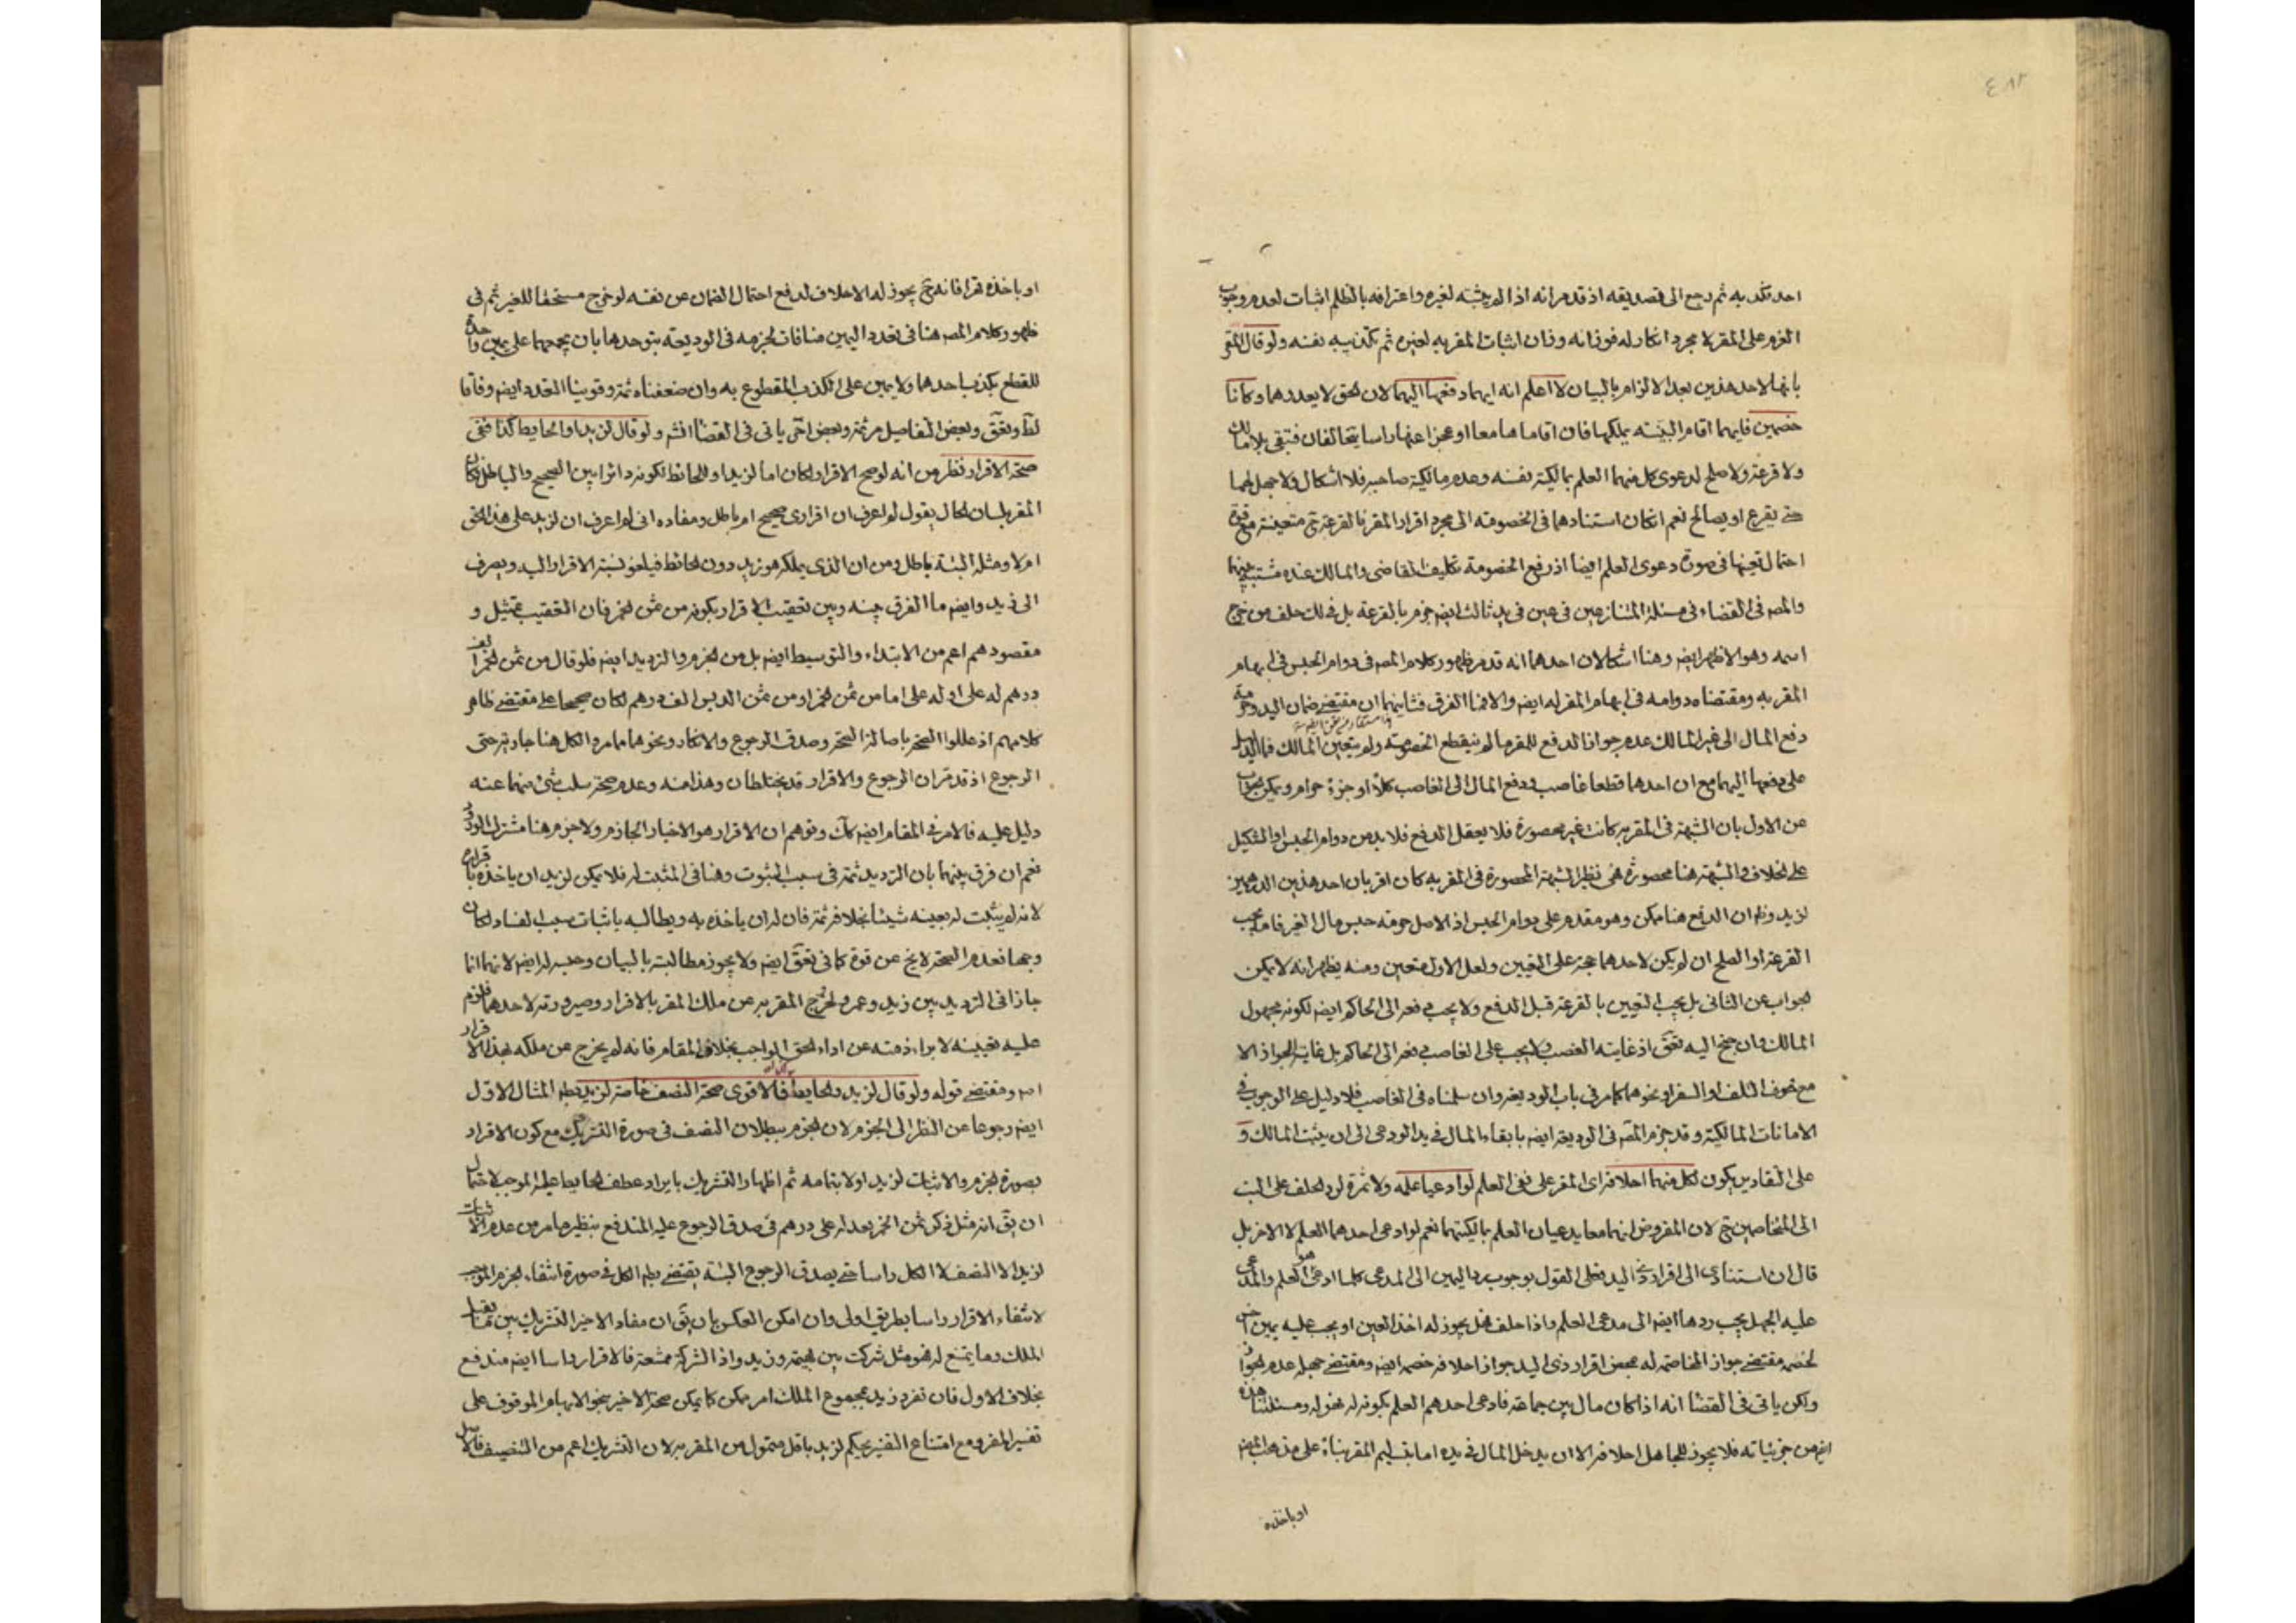 ٤٨٢
احد تكذيبه ثم رجع الى تصديقه اذ قد مر انه اذا لم يثبته لغيره واعترافه بالظلم اثبات لعدم وجوب
الغرم على المقر لا مجرد انكار له فوزانه وزان اثبات المقر به لغيره ثم تكذيبه نفسه ولو قال المقر
بانها لاحد هذين بعد الالزام بالبيان لا اعلم انه ايهما دفعها اليهما لان الحق لا يعدوهما وكانا
خصمين فايهما اقام البينه يملكها فان اقاماها معا او عجزا عنها راسا يتحالفان فتبقى بلا مالك
ولا قرعة ولا صلح لدعوى كل منهما العلم بمالكية نفسه وعدم مالكية صاحبه فلا اشكال ولا جهل لهما
حتى يقرع او يصالح نعم ان كان استنادهما في الخصومة الى مجرد اقرار المقر فالقرعة ح متعينة مع قوة
احتمال تعينها في صورة دعوى العلم ايضا اذ رفع الخصومة تكليف القاضي والمالك عنده مشتبه بينهما
والمص في القضاء في مسئلة المتنازعين في عين في يد ثالث ايض جزم بالقرعة بل في ذلك حلف من خرج
اسمه وهو الاظهر ايض وهنا اشكالان احدهما انه قد مر ظهور كلام المص في دوام الحبس في ابهام
المقر به ومقتضاه دوامه في ابهام المقر له ايض والا فما الفرق فثانيهما ان مقتضى ضمان اليد وحرمة
دفع المال الى غير المالك عدم جواز الدفع للمقر ما لم ينقطع الخصومة ولم يتعين المالك فما الدليل
على دفعها اليهما مع ان احدهما قطعا غاصب ودفع المال الى الغاصب كلا او جزء حرام ويمكن الجواب
عن الاول بان الشبهة في المقر به كانت غير محصورة فلا يعقل الدفع فلا بد من دوام الحبس او التنكيل
على الخلاف والشبهة هنا محصورة فهي نظير الشبهة المحصورة في المقر به كان اقر بان احد هذين الدرهمين
لزيد وظ ان الدفع هنا ممكن وهو مقدم على دوام الحبس اذ الاصل حرمة حبس مال الغير فاما يجب
القرعة او الصلح ان لم يكن لاحدهما حجة على التعيين ولعل الاول متعين ومنه يظهر انه لا يمكن
الجواب عن الثاني بل يجب التعيين بالقرعة قبل الدفع ولا يجب دفعه الى الحاكم ايض لكونه مجهول
المالك وان جنح اليه تعق اذ غايته الغصب ولا يجب على الغاصب دفعه الى الحاكم بل غايته الجواز الا
مع خوف التلف او السفر او نحوهما كما مر في باب الوديعة وان سلمناه في الغاصب فلا دليل على الوجوب في
الامانات المالكية وقد جزم المص في الوديعة ايض بابقاء المال في يد الودعي الى ان يثبت المالك و
على التقادير يكون لكل منهما احلافه اى المقر على نفى العلم لو ادعيا علمه ولا ثمرة لرد الحلف على البت
الى المتخاصمين ح لان المفروض انهما معا يدعيان العلم بمالكيتهما نعم لو ادعى احدهما العلم لا الاخر بل
قال ان استنادى الى اقرار ذى اليد فعلى القول بوجوب رد اليمين الى المدعى كلما ادعى هو العلم والمدعى
عليه الجهل يجب ردها ايض الى مدعى العلم واذا حلف فهل يجوز له اخذ العين او يجب عليه يمين اخر
لخصمه مقتضى جواز المخاصمة له بمحض اقرار ذى اليد جواز احلافه خصمه ايض ومقتضى جهله عدم الجواز
ولكن ياتى في القضا انه اذا كان مال بين جماعة فادعى احدهم العلم بكونه له نحو له ومسئلتنا هذه
ايض من جزئياته فلا يجوز للجاهل احلافه الا ان يدخل المال في يده اما بتسليم المقر بناء على مذهب المص
او باخذه
او باخذه قهرا فانه ح يجوز له الاحلاف لدفع احتمال الضمان عن نفسه لو خرج مستحقا للغير ثم في
ظهور كلام المص هنا في تعدد اليمين منافات لجزمه في الوديعة بتوحدها بان يجمعهما على يمين واحدة
للقطع بكذب احدهما ولا يمين على الكذب المقطوع به وان ضعفناه ثمة وقوينا التعدد ايض وفاقا
لظ وتعق وبعض التفاصيل مر ثمة وبعض اخر ياتى في القضا انش ولو قال لزيد او الحايط كذا ففى
صحة الاقرار نظر من انه لو صح الاقرار لكان اما لزيد او للحائط لكونه دائرا بين الصحيح والباطل لكان
المقر بلسان الحال يقول لم اعرف ان اقرارى صحيح ام باطل ومفاده انى لم اعرف ان لزيد على هذا الحق
ام لا ومثله البتة باطل ومن ان الذى يملك هو زيد دون الحائط فيلغو نسبة الاقرار اليه ويصرف
الى زيد وايض ما الفرق بينه وبين تعقيب الاقرار بكونه من ثمن الخمر فان التعقيب تمثيل و
مقصودهم اعم من الابتداء والتوسيط ايض بل من الجزم والترديد ايض فلو قال من ثمن الخمر الف
درهم له على او له على اما من ثمن الخمر او من ثمن الدبس الف درهم لكان صحيحا على مقتضى ظاهر
كلامهم اذ عللوا الصحة باصالة الصحة وصدق الرجوع والانكار ونحوهما مما مر والكل هنا جارية حتى
الرجوع اذ قد مر ان الرجوع والاقرار قد يختلطان وهذا منه وعدم صحة سلب شئ منهما عنه
دليل عليه فالامر في المقام ايض كك وتوهم ان الاقرار هو الاخبار الجازم ولا جزم هنا مشترك الورود
نعم ان فرق بينهما بان الترديد ثمة في سبب الثبوت وهنا في المثبت له فلا يمكن لزيد ان ياخذه باقراره
لانه لم يثبت له بعينه شيئا بخلافه ثمة فان له ان ياخذه به ويطالبه باثبات سبب الفساد لكان
وجها فعدم الصحة لا يخ عن قوة كما في تعق ايض ولا يجوز مطالبته بالبيان وحبسه له ايض لانهما انما
جازا في الترديد بين زيد وعمرو لخروج المقر به عن ملك المقر بالاقرار وصيرورته لاحدهما فلزم
عليه تعيينه لابراء ذمته عن اداء الحق الواجب بخلاف المقام فانه لم يخرج عن ملكه بهذا الاقرار
اص ومقتضى قوله ولو قال لزيد والحايط فالاقوى صحة النصف خاصة لزيد بطلان المثال الاول
ايض رجوعا عن النظر الى الجزم لان الجزم ببطلان النصف في صورة التشريك مع كون الاقرار
بصورة الجزم والاثبات لزيد اولا بتمامه ثم اظهار التشريك بايراد عطف الحايط عليه الموجب لاحتمال
ان يق انه مثل ذكر ثمن الخمر بعد له على درهم في صدق الرجوع عليه المندفع بنظير ما مر من عدم الاثبات
لزيد الا النصف لا الكل راسا حتى يصدق الرجوع البتة يقتضى بط الكل في صورة انتفاء الجزم الموجب
لانتفاء الاقرار راسا بطريق اولى وان امكن العكس بان يق ان مفاد الاخير التشريك بين ما يقبل
الملك وما يمتنع له فهو مثل شركت بين البهيمة وزيد واذ الشركة ممتنعة فالاقرار راسا ايض مندفع
بخلاف الاول فان تفرد زيد بمجموع الملك امر ممكن كما يمكن صحة الاخير بنحو الابهام الموقوف على
تفسير المقر ومع امتناع التفسير يحكم لزيد باقل متمول من المقر به لان التشريك اعم من التنصيف فالاصل